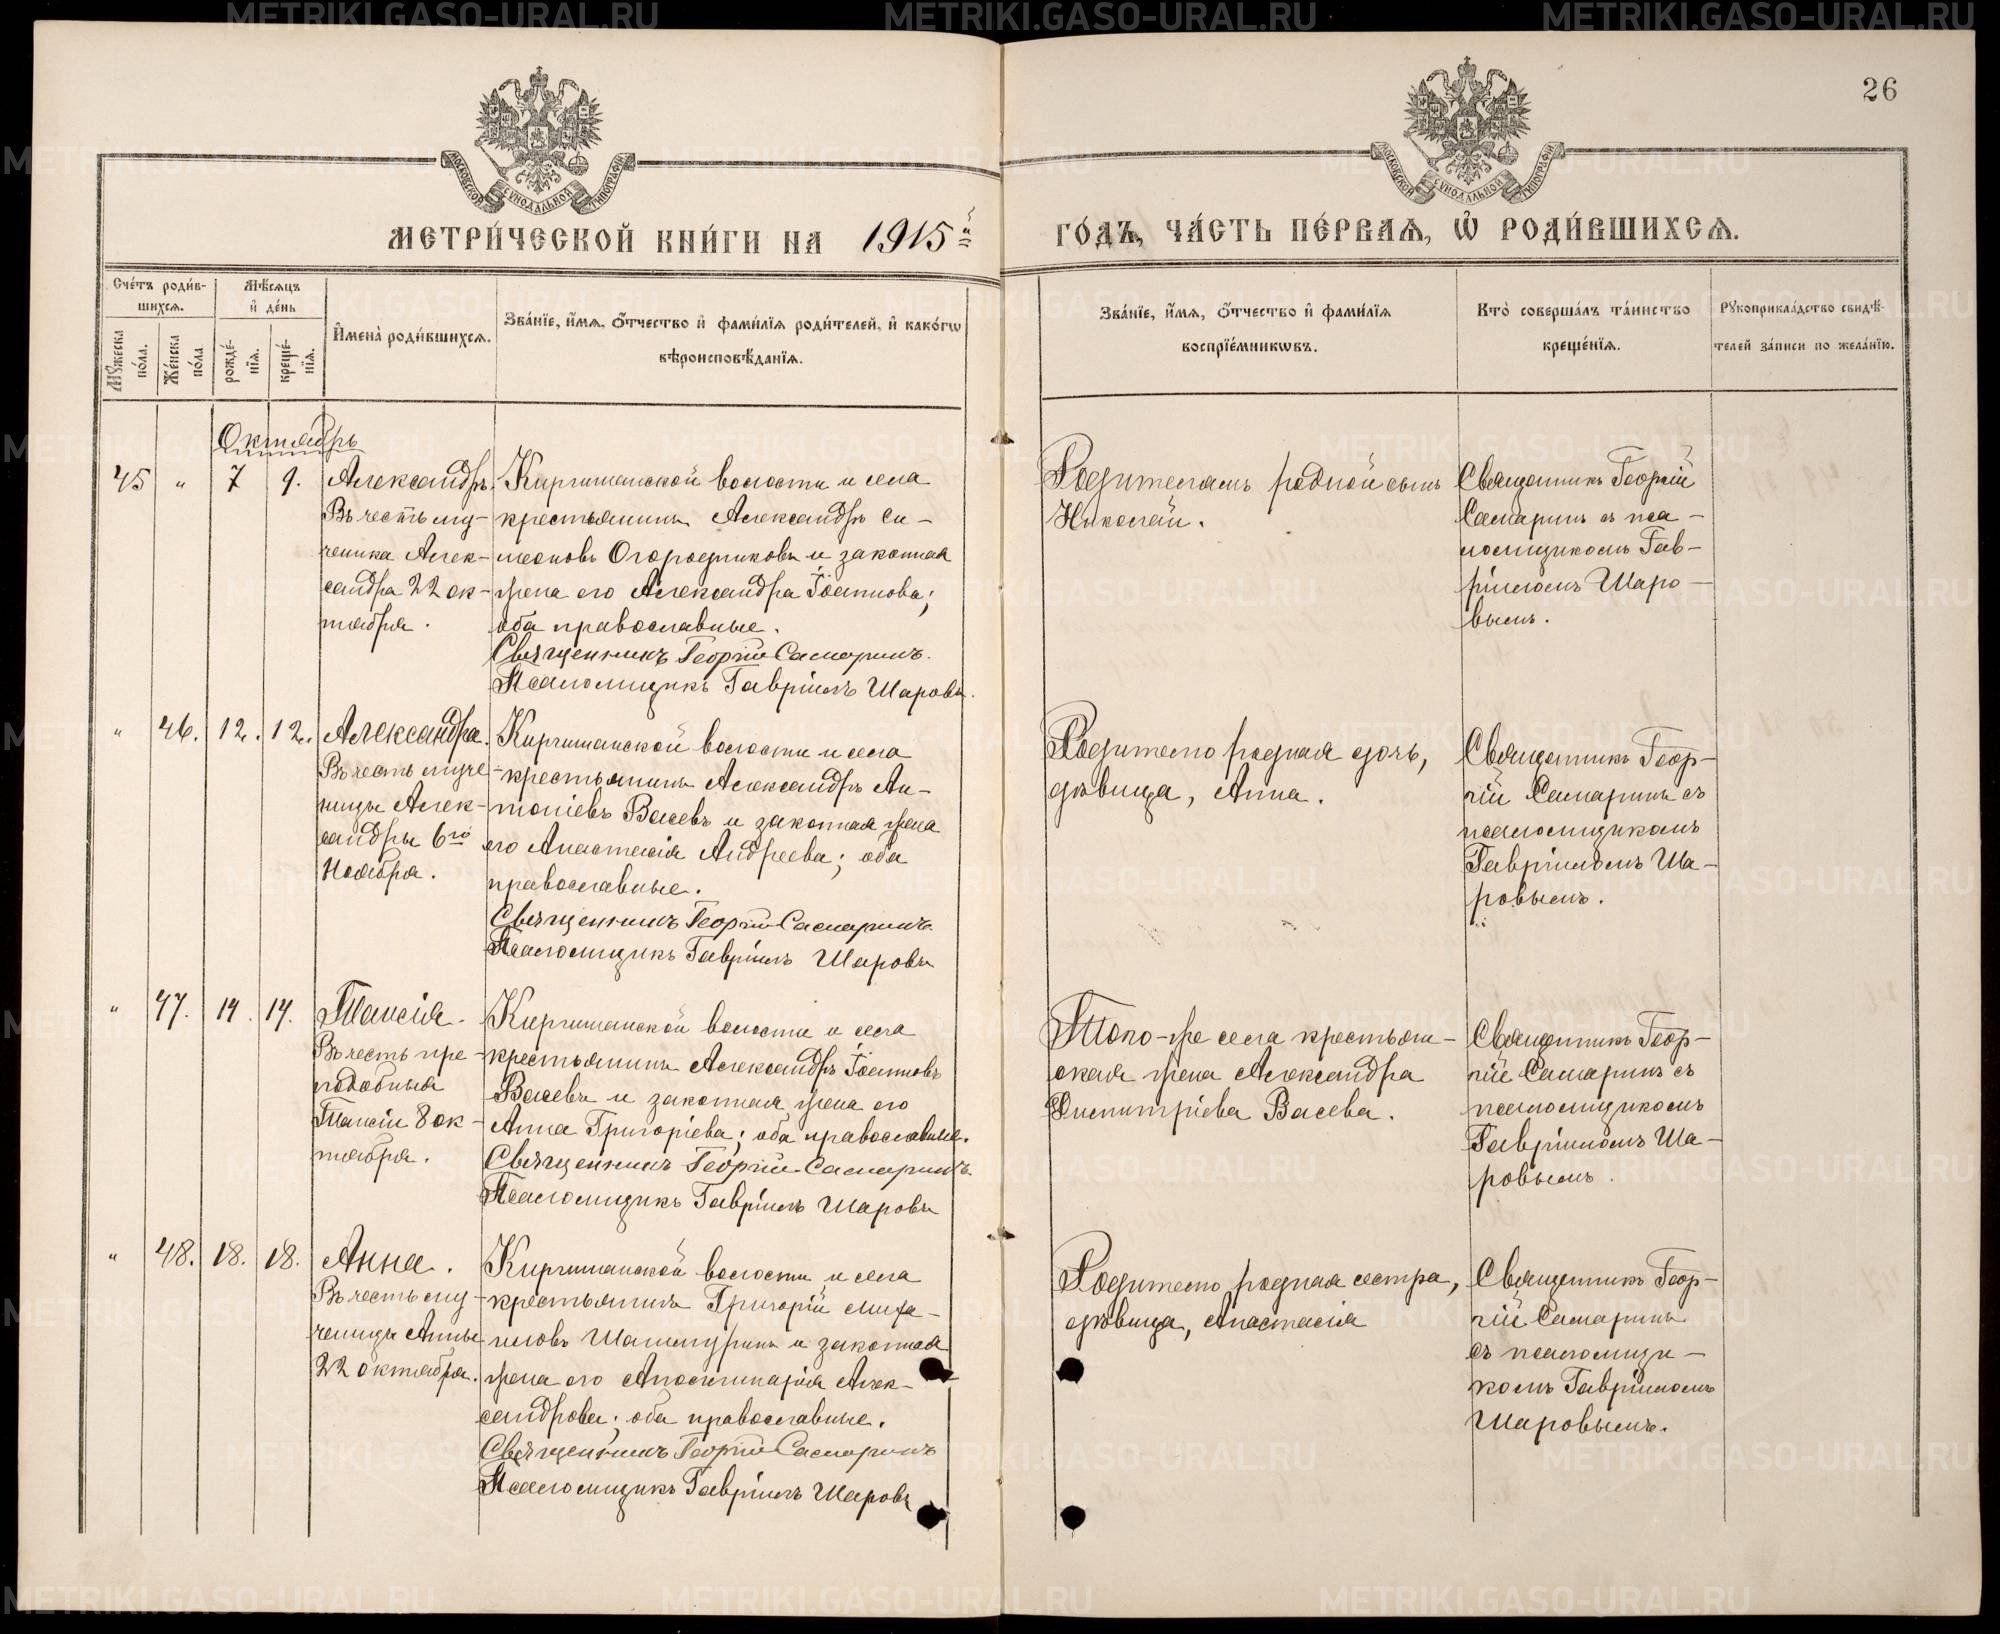 26
МОСКОВСКОЙ СѴНОДАЛЬНОЙ ТИПОГРАФІИ
МОСКОВСКОЙ СѴНОДАЛЬНОЙ ТИПОГРАФІИ
МЕТРИ́ЧЕСКОЙ КНИ́ГИ НА 1915й
ГО́ДЪ, ЧА́СТЬ ПЕ́РВАЯ, Ѡ҆ РОДИ́ВШИХСЯ.
Сче́тъ роди́в-
шихся.
Мѣ́сяцъ
и҆ де́нь
Мꙋ́жеска по́ла.
Же́нска по́ла
рожде́-
нїя.
креще́-
нїя.
И҆мена̀ роди́вшихся.
Зва́нїе, и҆́мя, ѻ҆́тчество и҆ фами́лїя роди́телей, и҆ како́гѡ
вѣроисповѣ́данїя.
Зва́нїе, и҆́мя, ѻ҆́тчество и҆ фами́лїя
воспрїе́мникѡвъ.
Кто̀ соверша́лъ та́инство
креще́нїя.
Рꙋкоприкла́дство свидѣ́-
телей за́писи по жела́нїю.
Октябрь
45 " 7 9. Александръ.
Въ честь му-
ченика Алек-
сандра 22 ок-
тября.
Киргишанской волости и села
крестьянинъ Александръ Си-
меоновъ Огородниковъ и законная
жена его Александра Іоаннова;
оба православные.
Священникъ Георгій Самаринъ.
Псаломщикъ Гавріилъ Шаровъ.
Родителямъ родной сынъ
Николай.
Священникъ Георгій
Самаринъ съ пса-
ломщикомъ Гав-
ріиломъ Шаро-
вымъ.
" 46. 12. 12. Александра.
Въ честь муче-
ницы Алек-
сандры 6го
Ноября.
Киргишанской волости и села
крестьянинъ Александръ Ан-
тоніевъ Васевъ и законная жена
его Анастасія Андреева; оба
православные.
Священникъ Георгій Самаринъ.
Псаломщикъ Гавріилъ Шаровъ
Родителю родная дочь,
дѣвица, Анна.
Священникъ Геор-
гій Самаринъ съ
псаломщикомъ
Гавріиломъ Ша-
ровымъ.
" 47. 14. 14. Таисія.
Въ честь пре-
подобныя
Таисіи 8 ок-
тября.
Киргишанской волости и села
крестьянинъ Александръ Іоанновъ
Васевъ и законная жена его
Анна Григоріева; оба православные.
Священникъ Георгій Самаринъ.
Псаломщикъ Гавріилъ Шаровъ
Того-же села крестьян-
ская жена Александра
Димитріева Васева.
Священникъ Геор-
гій Самаринъ съ
псаломщикомъ
Гавріиломъ Ша-
ровымъ.
" 48. 18. 18. Анна.
Въ честь му-
ченицы Анны
22 октября.
Киргишанской волости и села
крестьянинъ Григорій Миха-
иловъ Шашмуринъ и законная
жена его Аполлинарія Алек-
сандрова; оба православные.
Священникъ Георгій Самаринъ
Псаломщикъ Гавріилъ Шаровъ
Родителю родная сестра,
дѣвица, Анастасія
Священникъ Геор-
гій Самаринъ
съ псаломщи-
комъ Гавріиломъ
Шаровымъ.
METRIKI.GASO-URAL.RU